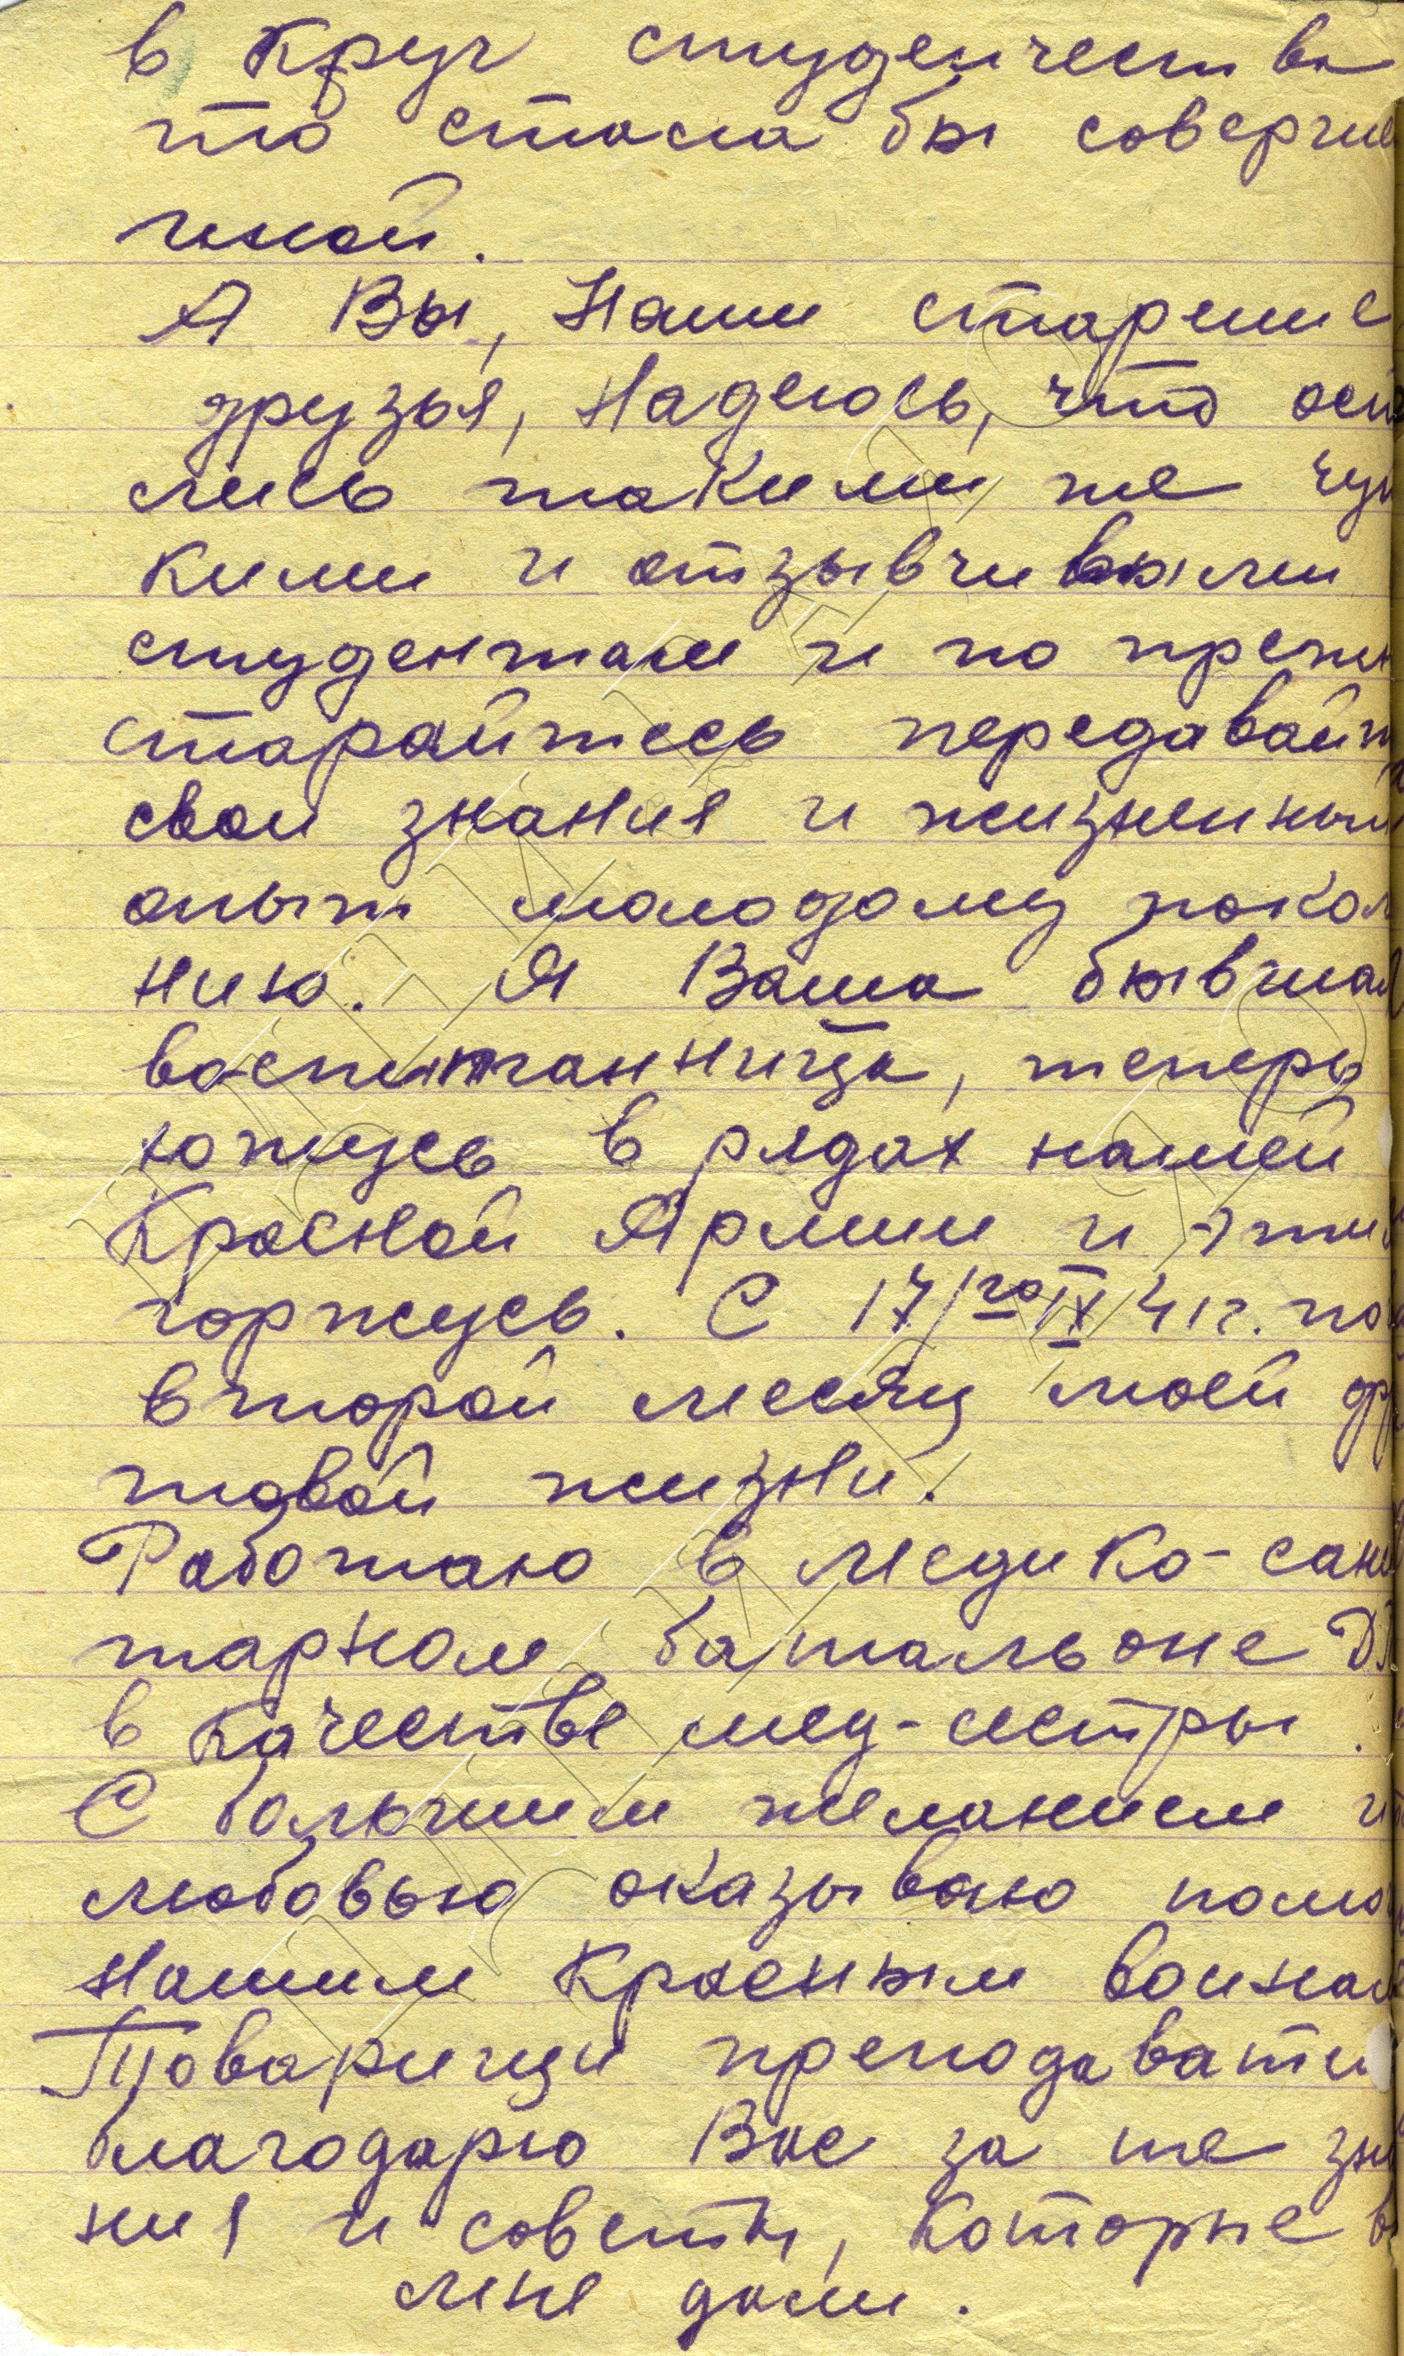 в круг студенчества
то стала бы соверше
иной.
А Вы, Наши старшие
друзья, Надеюсь, что оста
лись такими же чут
кими и отзывчивыми
студентам и по прежн
старайтесь передавайт
свои знания и жизненный
опыт молодому покол
нию. Я Ваша бывшая
воспитанница, теперь
в рядах нашей
Красной Армии и этим
горжусь. С 17/го IX 41г. по
второй месяц моей фр
товой жизни.
Работаю в медико-сани
тарном батальоне
в качестве мед-сестры.
С большим желанием и
любовью оказываю помощ
Нашим Красным воинам
Товарищи преподавател
благодарю Вас за те зна
ния и советы, которые в
мне дали.